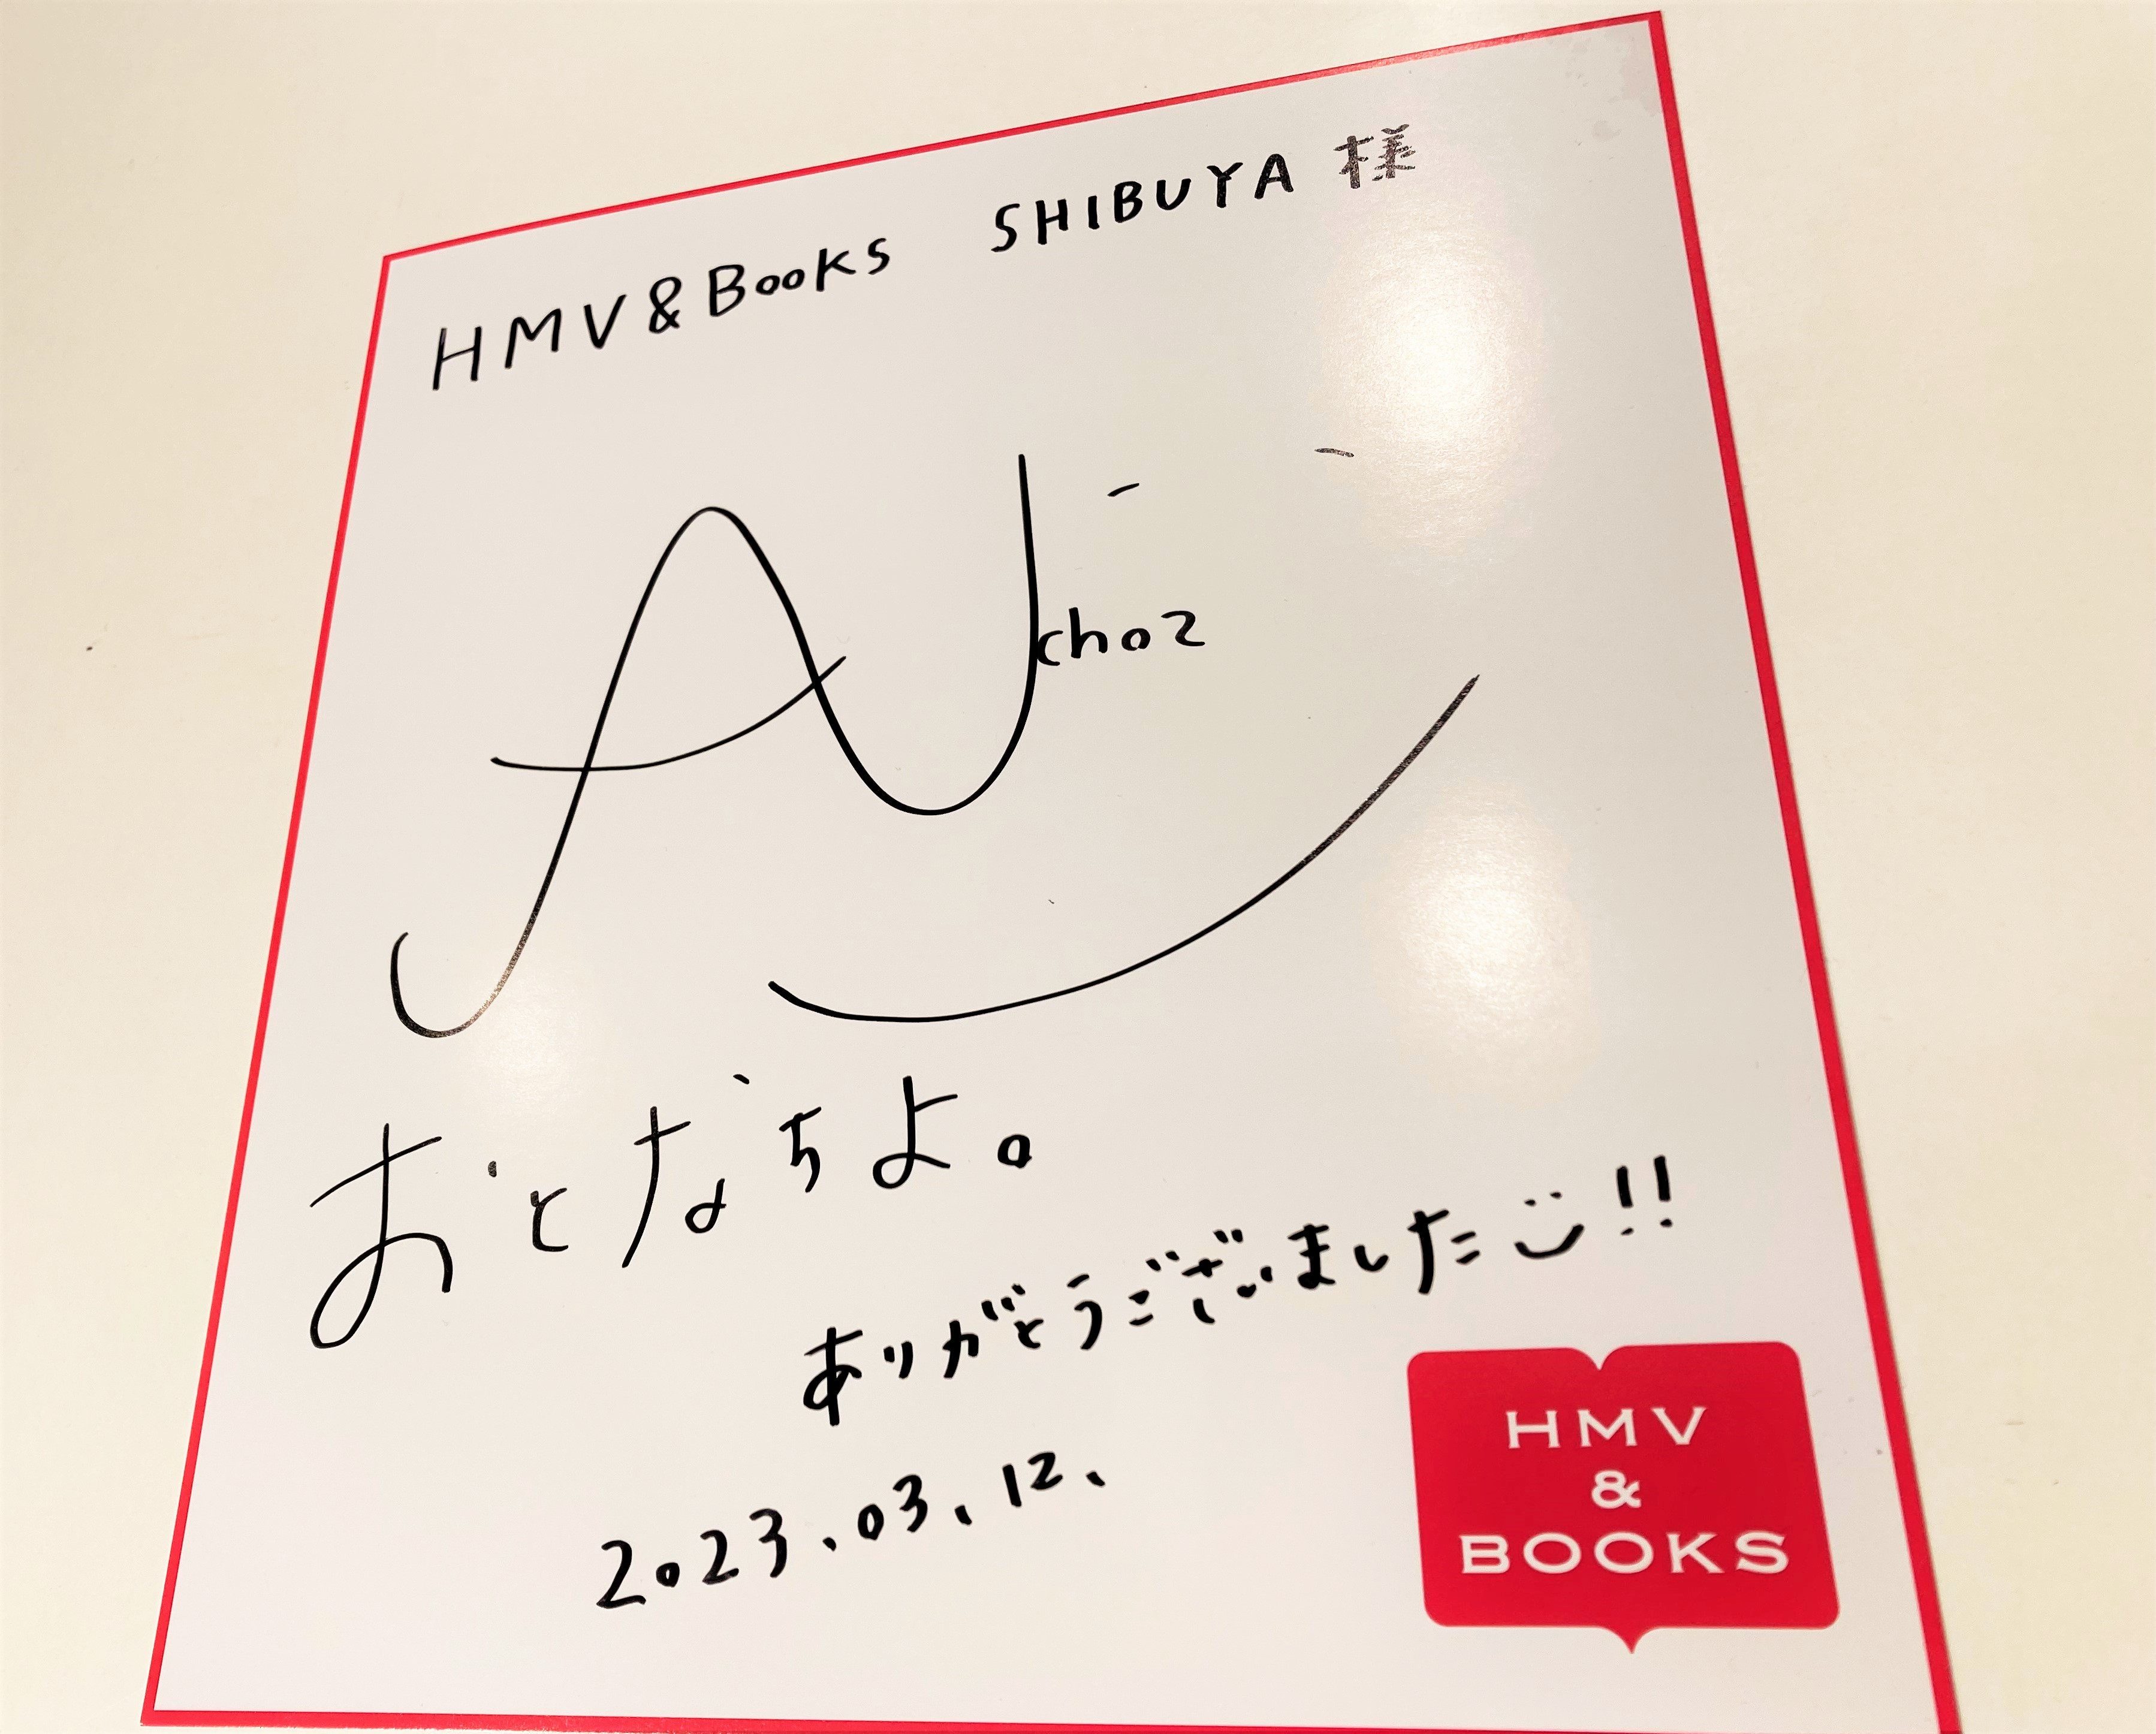 HMV&Books SHIBUYA 様
AJchoz
おとなちよ。
ありがとうございました!!
2023.03.12.
HMV
&
BOOKS